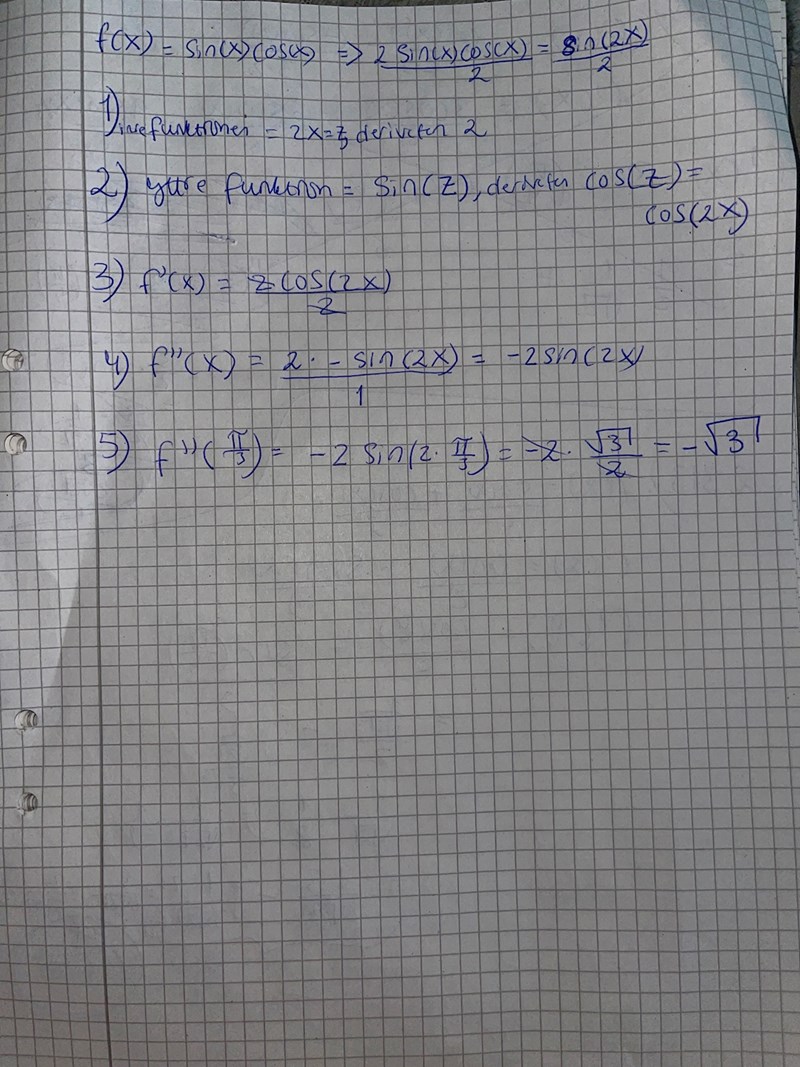 f(x) = sin(x)cos(x) => 2 sin(x)cos(x)/2 = sin(2x)/2
1) inre funktionen = 2x=z, derivatan 2
2) yttre funktion = sin(z), derivatan cos(z) =
cos(2x)
3) f'(x) = 2 cos(2x)/2
4) f''(x) = 2 · - sin(2x)/1 = -2sin(2x)
5) f''(π/3) = -2 sin(2 · π/3) = -2 · √3/2 = -√3